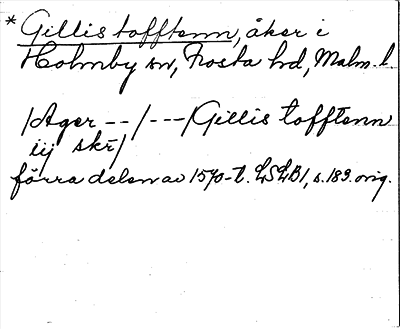 * Gillis tofftenn, åker i
Holmby sn, Frosta hd, Malm. l.
/Ager -- / --- /Gillis tofftenn
iij skr̄/
förra delen av 1570-t. LSLB1, s. 189. orig.